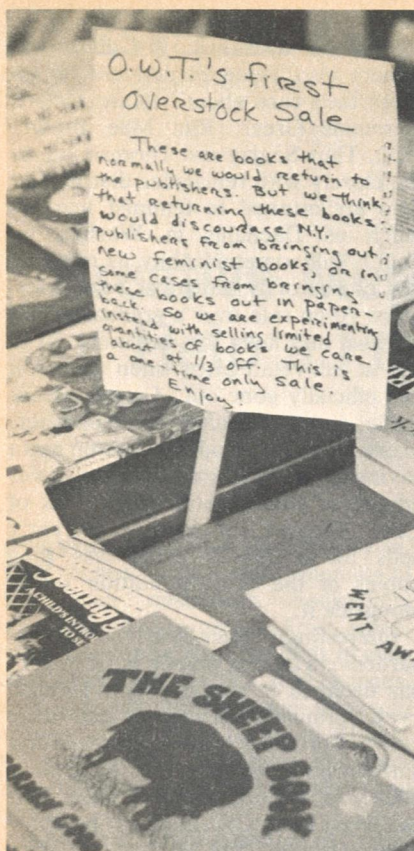 O.W.T.'s first
overstock Sale
These are books that
normally we would return to
the publishers. But we think
that returning these books
would discourage N.Y.
publishers from bringing out
new feminist books, or in
some cases from bringing
these books out in paper-
back. So we are experimenting
instead with selling limited
quantities of books we care
about at 1/3 off. This is
a one-time only sale.
Enjoy!
A CHILD'S
WENT
THE SHEEP BOOK